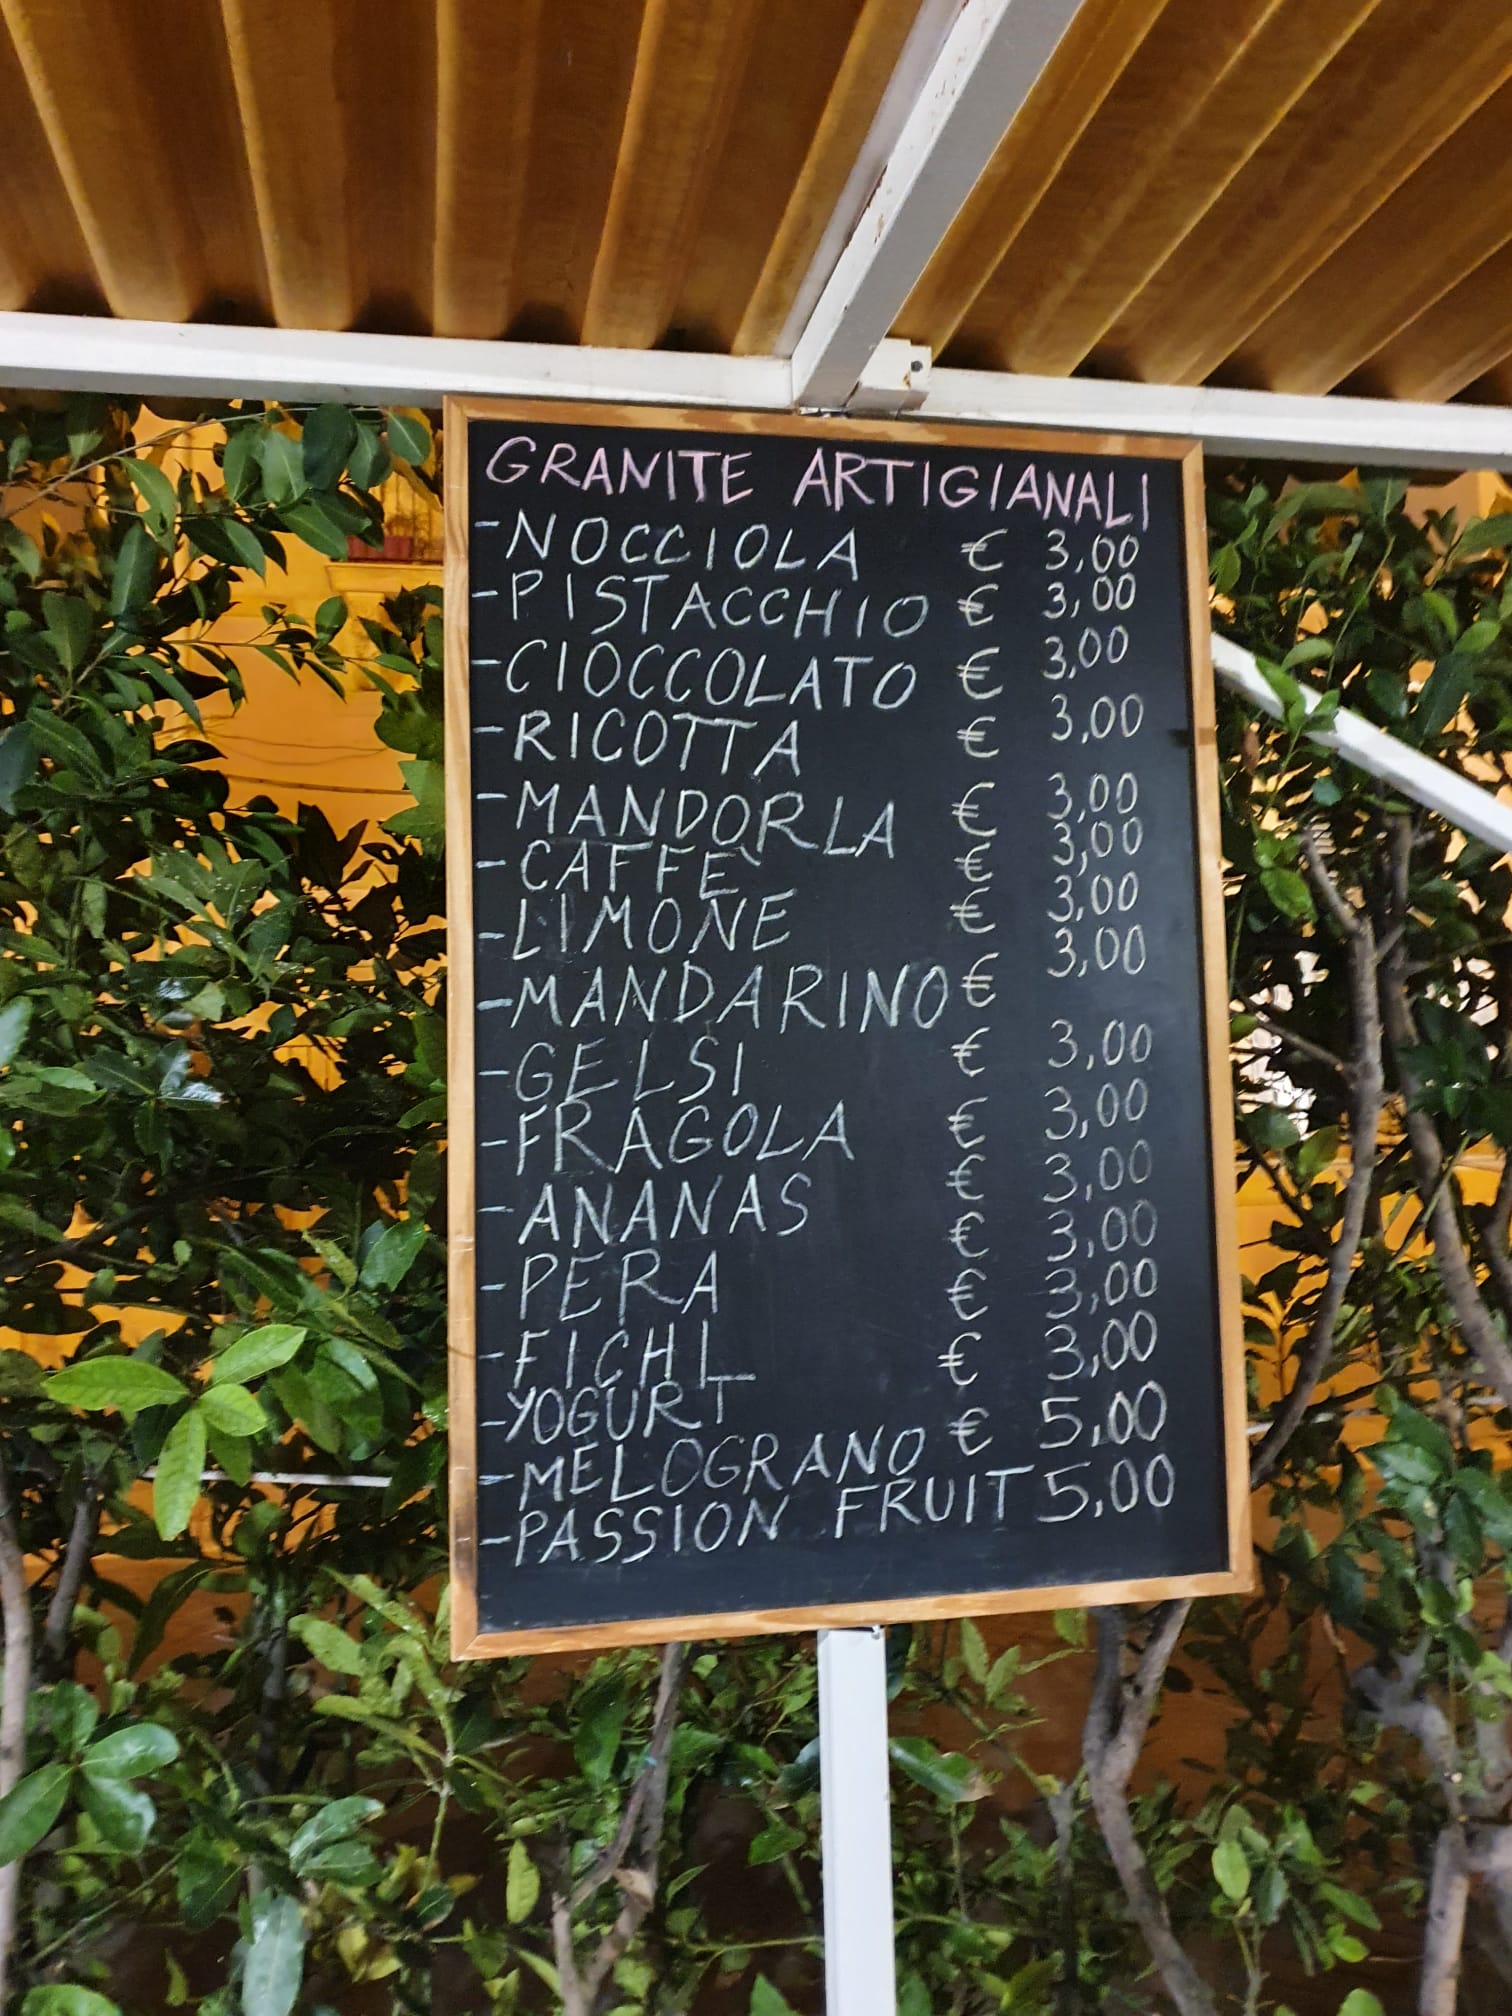 GRANITE ARTIGIANALI
-NOCCIOLA € 3,00
-PISTACCHIO € 3,00
-CIOCCOLATO € 3,00
-RICOTTA € 3,00
-MANDORLA € 3,00
-CAFFÈ € 3,00
-LIMONE € 3,00
-MANDARINO € 3,00
-GELSI € 3,00
-FRAGOLA € 3,00
-ANANAS € 3,00
-PERA € 3,00
-FICHI € 3,00
-YOGURT € 3,00
-MELOGRANO € 5,00
-PASSION FRUIT 5,00